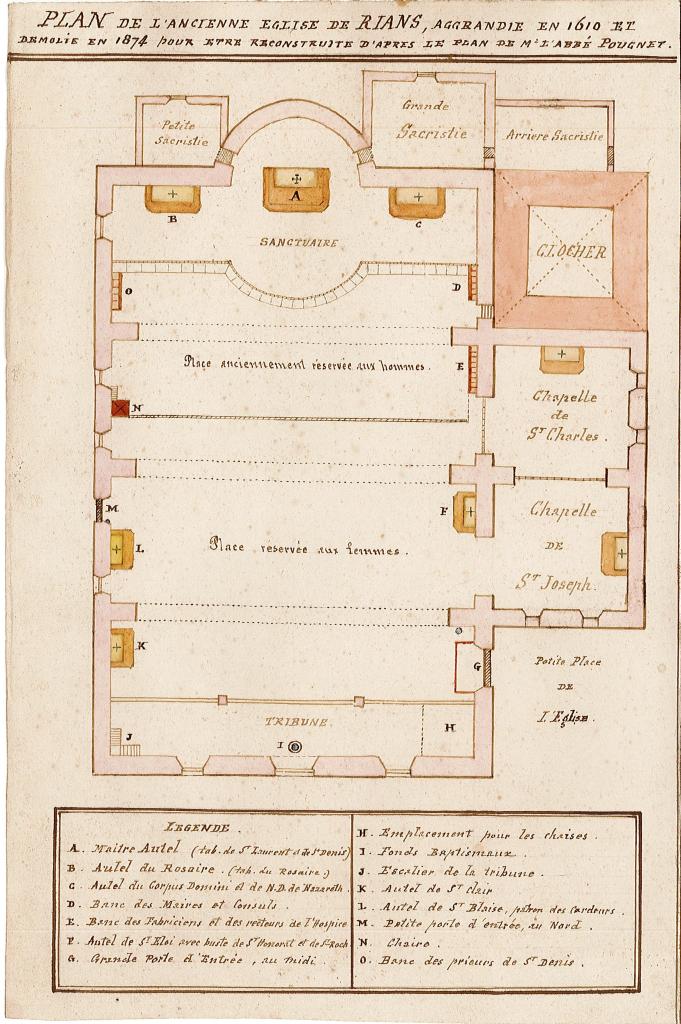 PLAN DE L'ANCIENNE EGLISE DE RIANS, AGGRANDIE EN 1610 ET
DEMOLIE EN 1874 POUR ETRE RECONSTRUITE D'APRES LE PLAN DE Mr L'ABBÉ POUGNET.
Petite
Sacristie
Grande
Sacristie
Arriere Sacristie
A
B
C
SANCTUAIRE
CLOCHER
O
D
Place anciennement réservée aux hommes.
E
N
Chapelle
de
St Charles.
M
F
L
Place réservée aux femmes.
Chapelle
DE
St Joseph.
K
G
Petite Place
DE
L'Eglise.
TRIBUNE.
J
I
H
LEGENDE.
A. Maitre Autel (tab. de St Laurent et de St Denis)
B. Autel du Rosaire. (tab. du Rosaire.)
C. Autel du Corpus Domini et de N.D. de Nazareth.
D. Banc des Maires et Consuls.
E. Banc des Fabriciens et des recteurs de l'Hospice
F. Autel de St Eloi avec buste de St Honorat et de St Roch
G. Grande Porte d'Entrée, au midi.
H. Emplacement pour les chaises.
I. Fonds Baptismaux.
J. Escalier de la tribune.
K. Autel de St Clair
L. Autel de St Blaise, patron des Cardeurs.
M. Petite porte d'entrée, au Nord.
N. Chaire.
O. Banc des prieurs de St Denis.